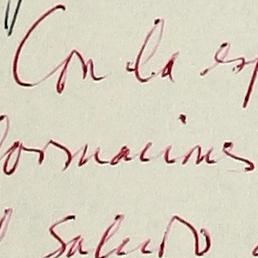 Con la esp
formaciones
l saludo